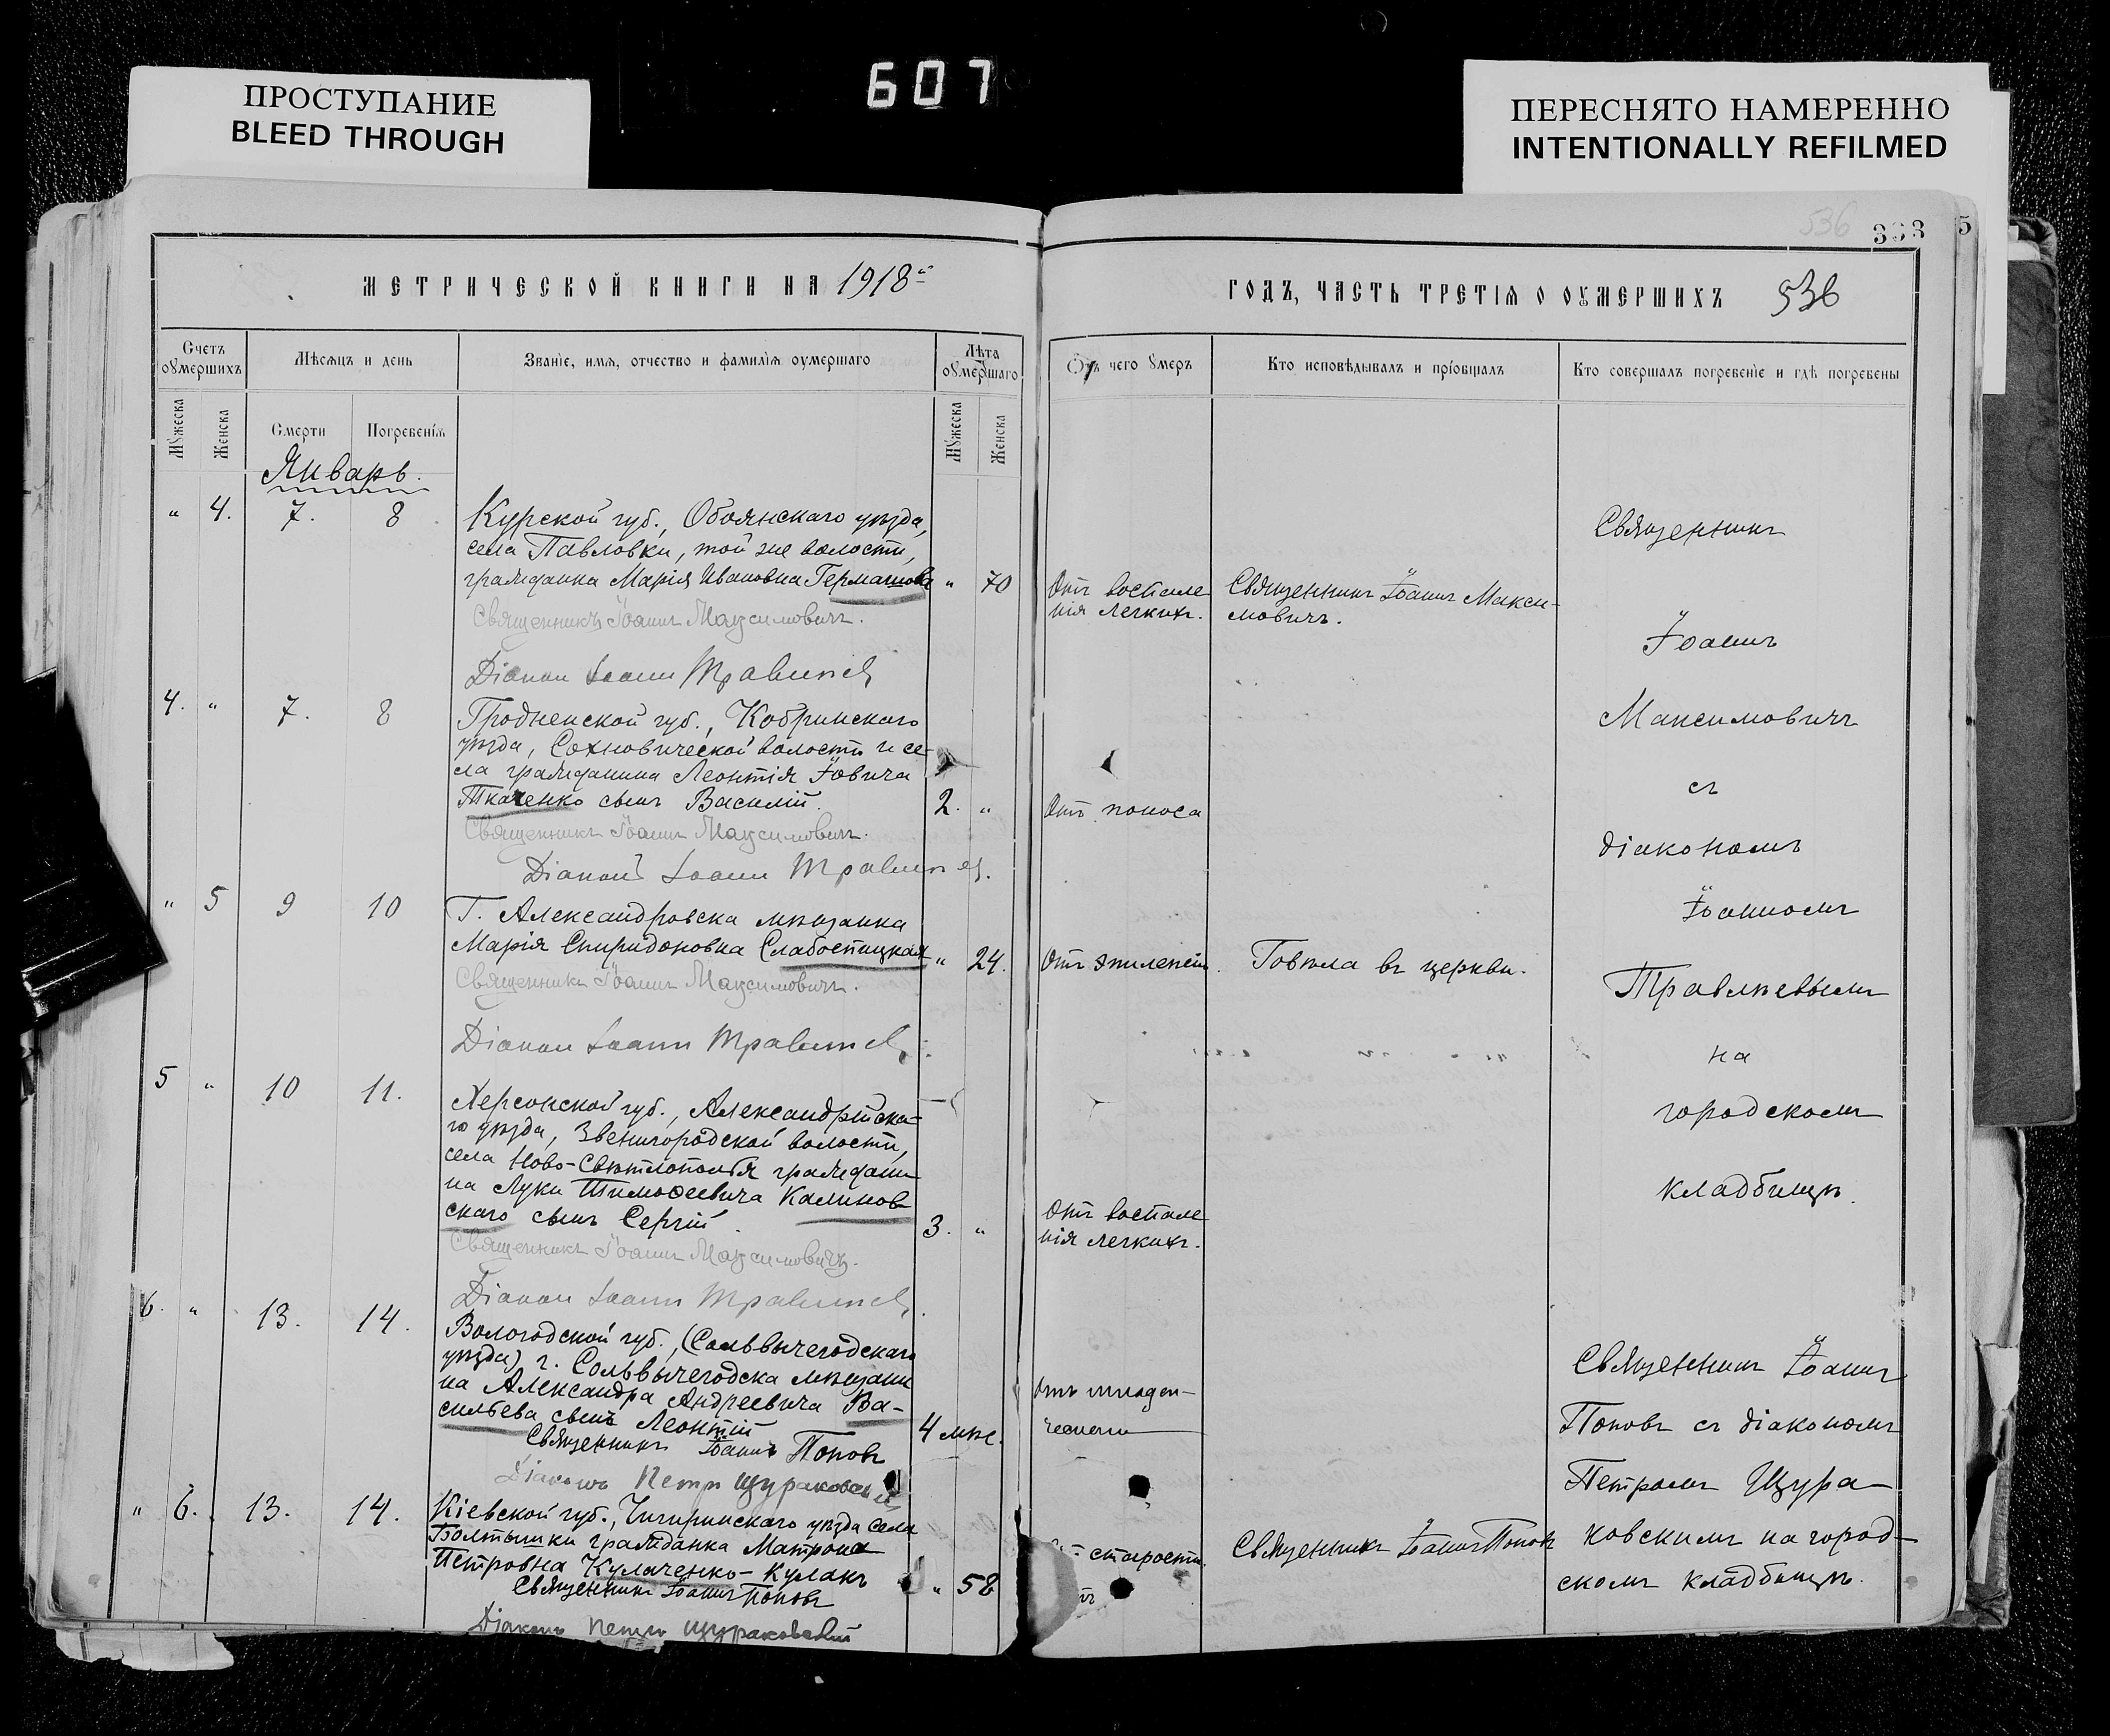 607
ПРОСТУПАНИЕ
BLEED THROUGH
ПЕРЕСНЯТО НАМЕРЕННО
INTENTIONALLY REFILMED
536
333
5
МЕТРИЧЕСКОЙ КНИГИ НА 1918й
ГОДЪ, ЧАСТЬ ТРЕТІЯ О ОУМЕРШИХЪ 536
Счетъ оумершихъ
Мѣсяцъ и день
Званіе, имя, отчество и фамилія оумершаго
Лѣта оумершаго
Отъ чего Умеръ
Кто исповѣдывалъ и пріобщалъ
Кто совершалъ погребеніе и гдѣ погребены
Мужеска
Женска
Смерти
Погребенія
Мужеска
Женска
Январь.
" 4. 7. 8
Курской губ., Обоянскаго уѣзда,
села Павловки, той же волости,
гражданка Марія Ивановна Германова " 70
Священникъ Іоаннъ Максимовичъ.
Діакон Іоанн Травинев
Отъ воспале
нія легкихъ.
Священникъ Іоаннъ Макси-
мовичъ.
4. " 7. 8
Гродненской губ., Кобринскаго
уѣзда, Сохновической волости и се-
ла гражданина Леонтія Іовича
Ткаченко сынъ Василій. 2. "
Священникъ Іоаннъ Максимовичъ.
Діакон Іоанн Травинев.
Отъ поноса
" 5 9 10
Г. Александровска мѣщанка
Марія Спиридоновна Слабоспицкая " 24.
Священникъ Іоаннъ Максимовичъ.
Діакон Іоанн Травинев
Отъ эпилепсіи.
Говѣла въ церкви.
5 " 10 11.
Херсонской губ., Александрійска-
го уѣзда, Звенигородской волости,
села Ново-Свѣтлополья граждани
на Луки Тимофеевича Калинов-
скаго сынъ Сергій. 3. "
Священникъ Іоаннъ Максимовичъ.
Діакон Іоанн Травинев
Отъ воспале
нія легкихъ.
Священникъ
Іоаннъ
Максимовичъ
съ
діакономъ
Іоанномъ
на
городскомъ
кладбищѣ.
6. " 13. 14.
Вологодской губ., (Сольвычегодскаго
уѣзда) г. Сольвычегодска мѣщани
на Александра Андреевича Ва-
сильева сынъ Леонтій 4 мѣс.
Священникъ Іоаннъ Поповъ
Діаконъ Петръ Щураковскій
Отъ младен-
Священникъ Іоаннъ
Поповъ съ діакономъ
Петромъ Щура-
ковскимъ на город-
скомъ кладбищѣ.
" 6. 13. 14.
Кіевской губ., Чигиринскаго уѣзда села
Болтышки гражданка Матрона
Петровна Кулаченко-Кулакъ " 58
Священникъ Іоаннъ Поповъ
Діаконъ Петръ Щураковскій
старости.
Священникъ Іоаннъ Поповъ